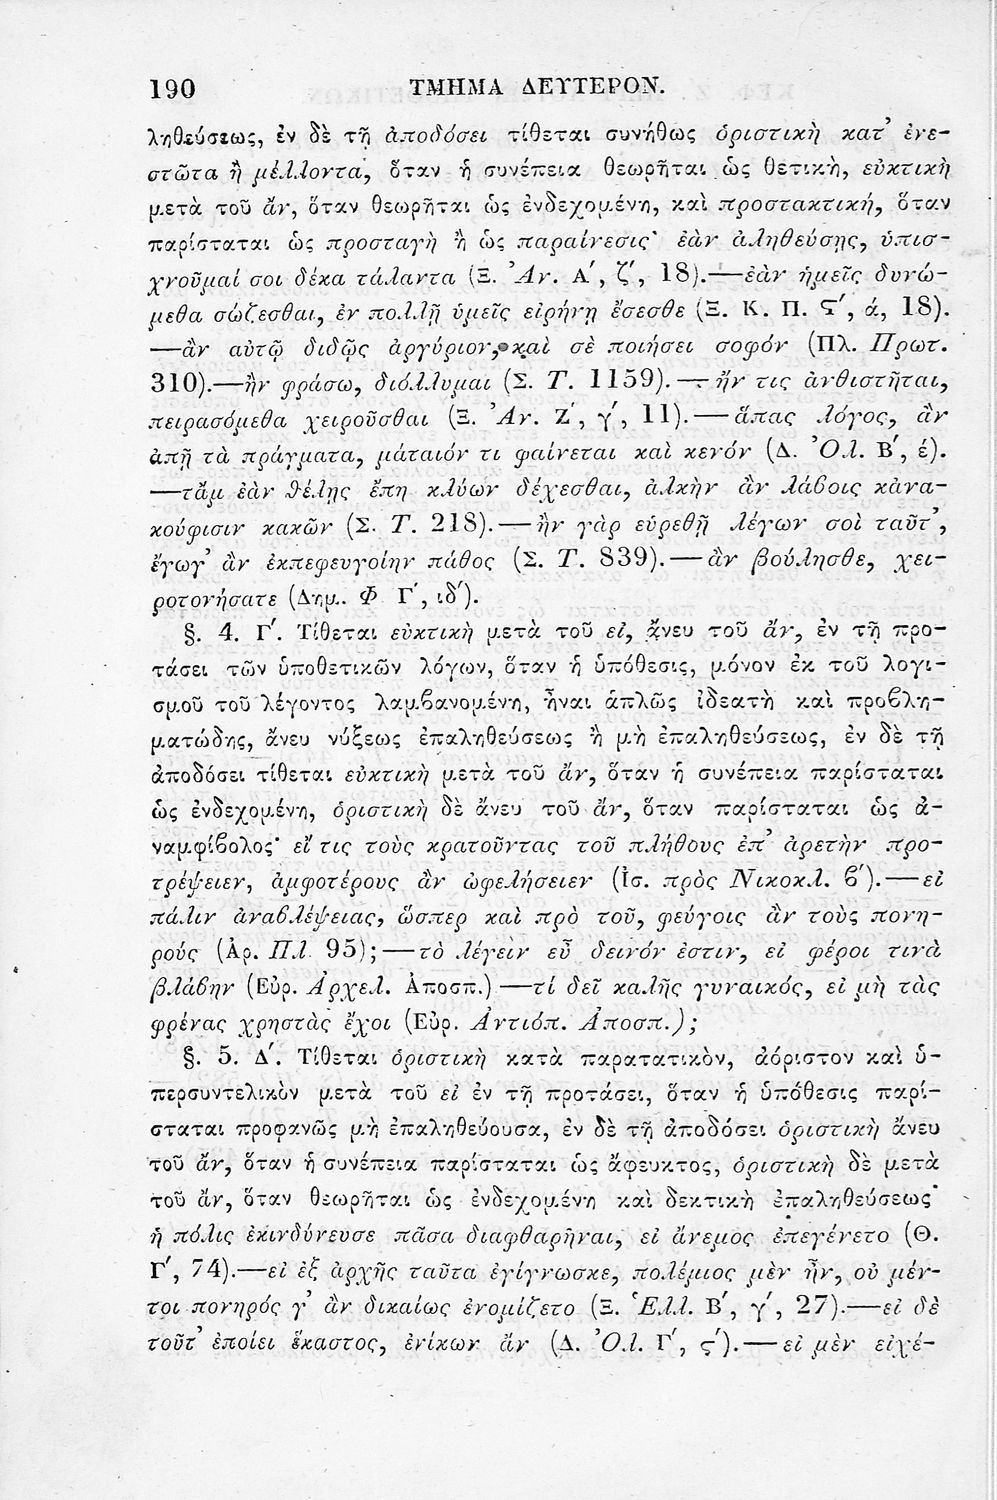 190 ΤΜΗΜΑ ΔΕΥΤΕΡΟΝ.
ληθεύσεως, ἐν δὲ τῇ ἀποδόσει τίθεται συνήθως ὁριστικὴ κατ᾽ ἐνε-
στῶτα ἢ μέλλοντα, ὅταν ἡ συνέπεια θεωρῆται ὡς θετικὴ, εὐκτικὴ
μετὰ τοῦ ἄν, ὅταν θεωρῆται ὡς ἐνδεχομένη, καὶ προστακτική, ὅταν
παρίσταται ὡς προσταγὴ ἢ ὡς παραίνεσις· ἐὰν ἀληθεύσῃς, ὑπισ-
χνοῦμαί σοι δέκα τάλαντα (Ξ. Ἀν. Α΄, ζ΄, 18).—ἐὰν ἡμεῖς δυνώ-
μεθα σώζεσθαι, ἐν πολλῇ ὑμεῖς εἰρήνῃ ἔσεσθε (Ξ. Κ. Π. Ϛ΄, ά, 18).
—ἂν αὐτῷ διδῷς ἀργύριον, καὶ σὲ ποιήσει σοφόν (Πλ. Πρωτ.
310).—ἢν φράσω, διόλλυμαι (Σ. Τ. 1159).—ἤν τις ἀνθιστῆται,
πειρασόμεθα χειροῦσθαι (Ξ. Ἀν. Ζ΄, γ΄, 11).—ἅπας λόγος, ἂν
ἀπῇ τὰ πράγματα, μάταιόν τι φαίνεται καὶ κενόν (Δ. Ὀλ. Β΄, έ).
—τἄμ ἐὰν θέλῃς ἔπη κλύων δέχεσθαι, ἀλκὴν ἂν λάβοις κἀνα-
κούφισιν κακῶν (Σ. Τ. 218).—ἢν γὰρ εὑρεθῇ λέγων σοὶ ταῦτ᾽,
ἔγωγ᾽ ἂν ἐκπεφευγοίην πάθος (Σ. Τ. 839).—ἂν βούλησθε, χει-
ροτονήσατε (Δημ. Φ Γ΄, ιδ΄).
§. 4. Γ΄. Τίθεται εὐκτικὴ μετὰ τοῦ εἰ, ἄνευ τοῦ ἄν, ἐν τῇ προ-
τάσει τῶν ὑποθετικῶν λόγων, ὅταν ἡ ὑπόθεσις, μόνον ἐκ τοῦ λογι-
σμοῦ τοῦ λέγοντος λαμβανομένη, ἦναι ἁπλῶς ἰδεατὴ καὶ προβλη-
ματώδης, ἄνευ νύξεως ἐπαληθεύσεως ἢ μὴ ἐπαληθεύσεως, ἐν δὲ τῇ
ἀποδόσει τίθεται εὐκτικὴ μετὰ τοῦ ἄν, ὅταν ἡ συνέπεια παρίσταται
ὡς ἐνδεχομένη, ὁριστικὴ δὲ ἄνευ τοῦ ἄν, ὅταν παρίσταται ὡς ἀ-
ναμφίβολος· εἴ τις τοὺς κρατοῦντας τοῦ πλήθους ἐπ᾽ ἀρετὴν προ-
τρέψειεν, ἀμφοτέρους ἂν ὠφελήσειεν (Ἰσ. πρὸς Νικοκλ. β΄).—εἰ
πάλιν ἀναβλέψειας, ὥσπερ καὶ πρὸ τοῦ, φεύγοις ἂν τοὺς πονη-
ρούς (Ἀρ. Πλ. 95);—τὸ λέγειν εὖ δεινόν ἐστιν, εἰ φέροι τινὰ
βλάβην (Εὐρ. Ἀρχελ. Ἀποσπ.)—τί δεῖ καλῆς γυναικός, εἰ μὴ τὰς
φρένας χρηστὰς ἔχοι (Εὐρ. Ἀντιόπ. Ἀποσπ.);
§. 5. Δ΄. Τίθεται ὁριστικὴ κατὰ παρατατικὸν, ἀόριστον καὶ ὑ-
περσυντελικὸν μετὰ τοῦ εἰ ἐν τῇ προτάσει, ὅταν ἡ ὑπόθεσις παρί-
σταται προφανῶς μὴ ἐπαληθεύουσα, ἐν δὲ τῇ ἀποδόσει ὁριστικὴ ἄνευ
τοῦ ἄν, ὅταν ἡ συνέπεια παρίσταται ὡς ἄφευκτος, ὁριστικὴ δὲ μετὰ
τοῦ ἄν, ὅταν θεωρῆται ὡς ἐνδεχομένη καὶ δεκτικὴ ἐπαληθεύσεως·
ἡ πόλις ἐκινδύνευσε πᾶσα διαφθαρῆναι, εἰ ἄνεμος ἐπεγένετο (Θ.
Γ΄, 74).—εἰ ἐξ ἀρχῆς ταῦτα ἐγίγνωσκε, πολέμιος μὲν ἦν, οὐ μέν-
τοι πονηρός γ᾽ ἂν δικαίως ἐνομίζετο (Ξ. Ἑλλ. Β΄, γ΄, 27).—εἰ δὲ
τοῦτ᾽ ἐποίει ἕκαστος, ἐνίκων ἄν (Δ. Ὀλ. Γ΄, ς΄).—εἰ μὲν εἰχέ-